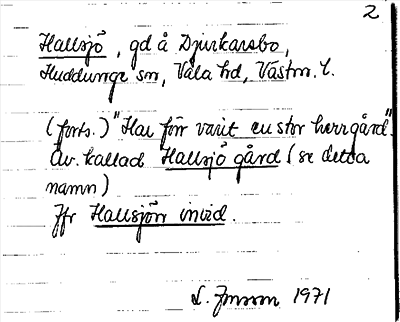 2
Hallsjö, gd å Djurkarsbo,
Huddunge sn, Våla hd, Västm. l.
(forts.) "Har förr varit en stor herrgård".
Äv. kallad Hallsjö gård (se detta
namn)
Jfr Hallsjön invid.
L. 1971